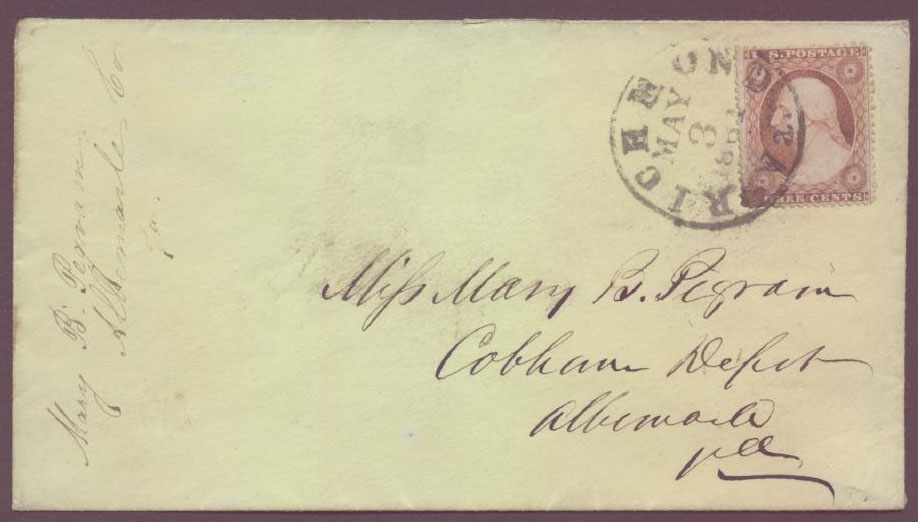 U.S. POSTAGE
THREE CENTS
RICHMOND Va.
MAY
3
Miss Mary B. Pegram
Cobham Depot
Albemarle
Va
Mary B. Pegram
Albemarle Co
Va.